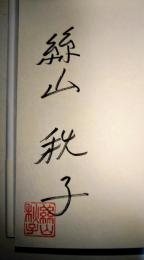 絲山秋子
絲山
秋子